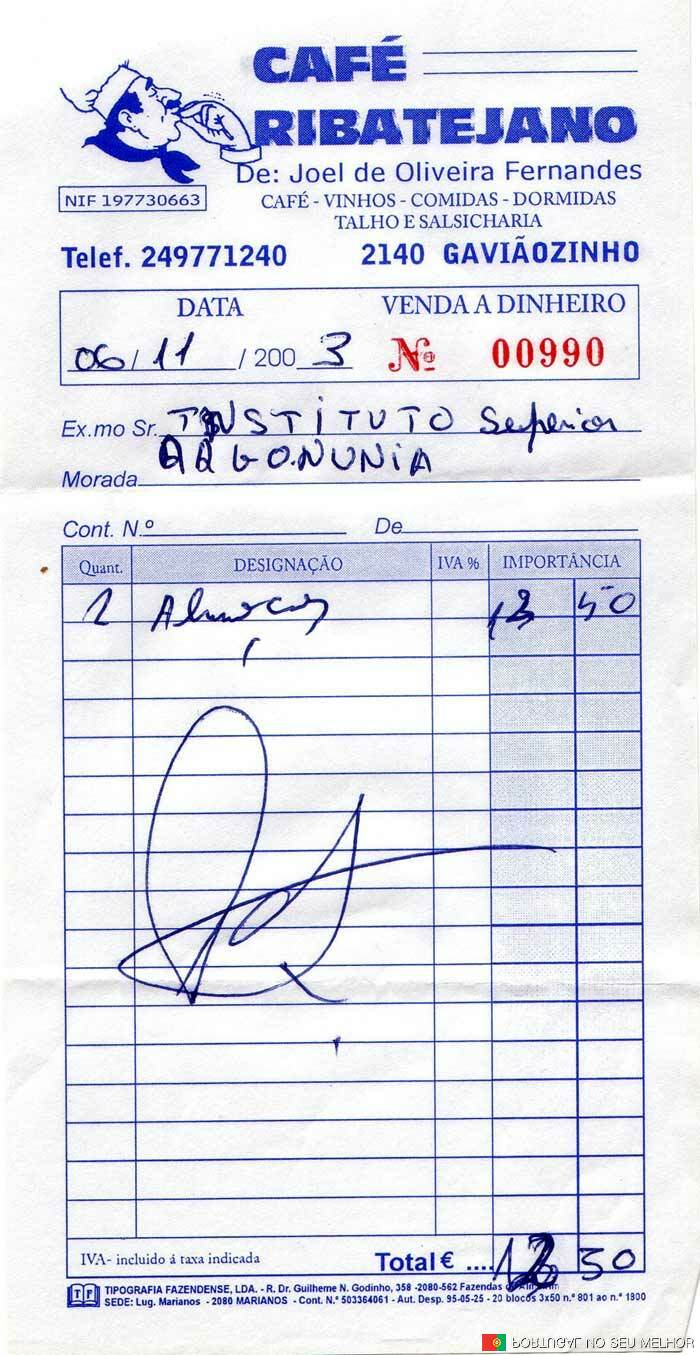 CAFÉ
RIBATEJANO
De: Joel de Oliveira Fernandes
NIF 197730663
CAFÉ - VINHOS - COMIDAS - DORMIDAS
TALHO E SALSICHARIA
Telef. 249771240 2140 GAVIÃOZINHO
DATA VENDA A DINHEIRO
06/11/2003 Nº 00990
Ex.mo Sr. INSTITUTO Superior
Morada
Cont. N.º De
Quant. DESIGNAÇÃO IVA % IMPORTÂNCIA
50
IVA - incluido á taxa indicada Total € .... 50
TF TIPOGRAFIA FAZENDENSE, LDA. - R. Dr. Guilherme N. Godinho, 358 -2080-562 Fazendas
SEDE: Lug. Marianos - 2080 MARIANOS - Cont. N.º 503364061 - Aut. Desp. 95-05-25 - 20 blocos 3x50 n.º 801 ao n.º 1800
PORTUGAL NO SEU MELHOR